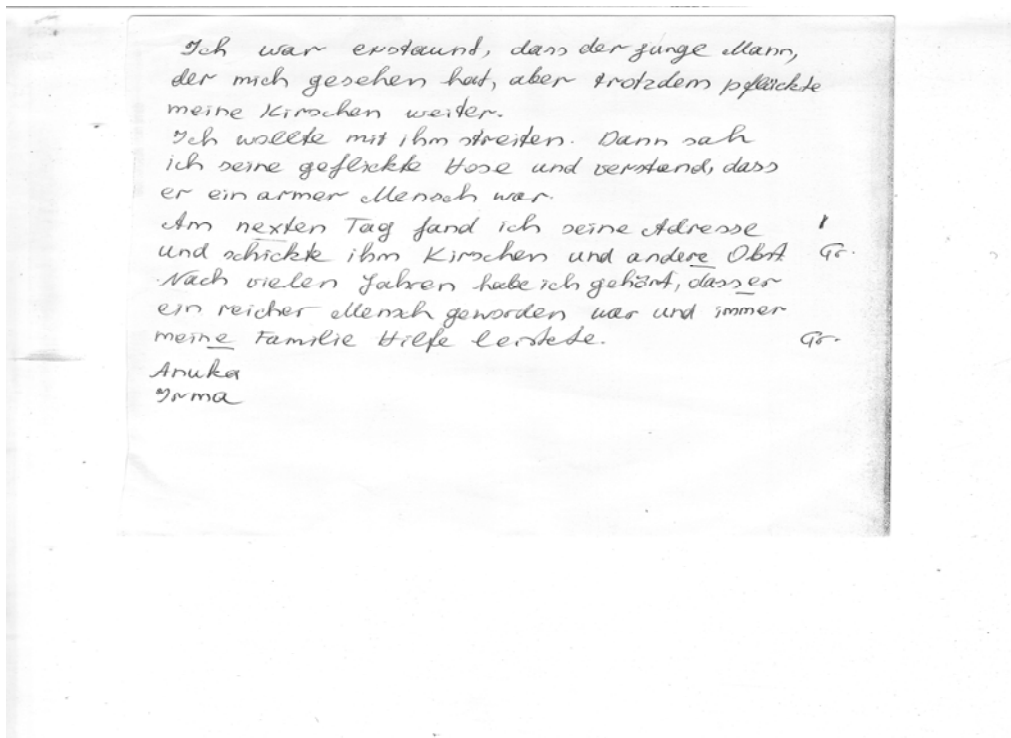 Ich war erstaunt, dass der junge Mann,
der mich gesehen hat, aber trotzdem pflückte
meine Kirschen weiter.
Ich wollte mit ihm streiten. Dann sah
ich seine geflickte Hose und verstand, dass
er ein armer Mensch war.
Am nexten Tag fand ich seine Adresse I
und schickte ihm Kirschen und andere Obst. Gr.
Nach vielen Jahren habe ich gehört, dass er
ein reicher Mensch geworden war und immer
meine Familie Hilfe leistete. Gr.
Anuka
Irma